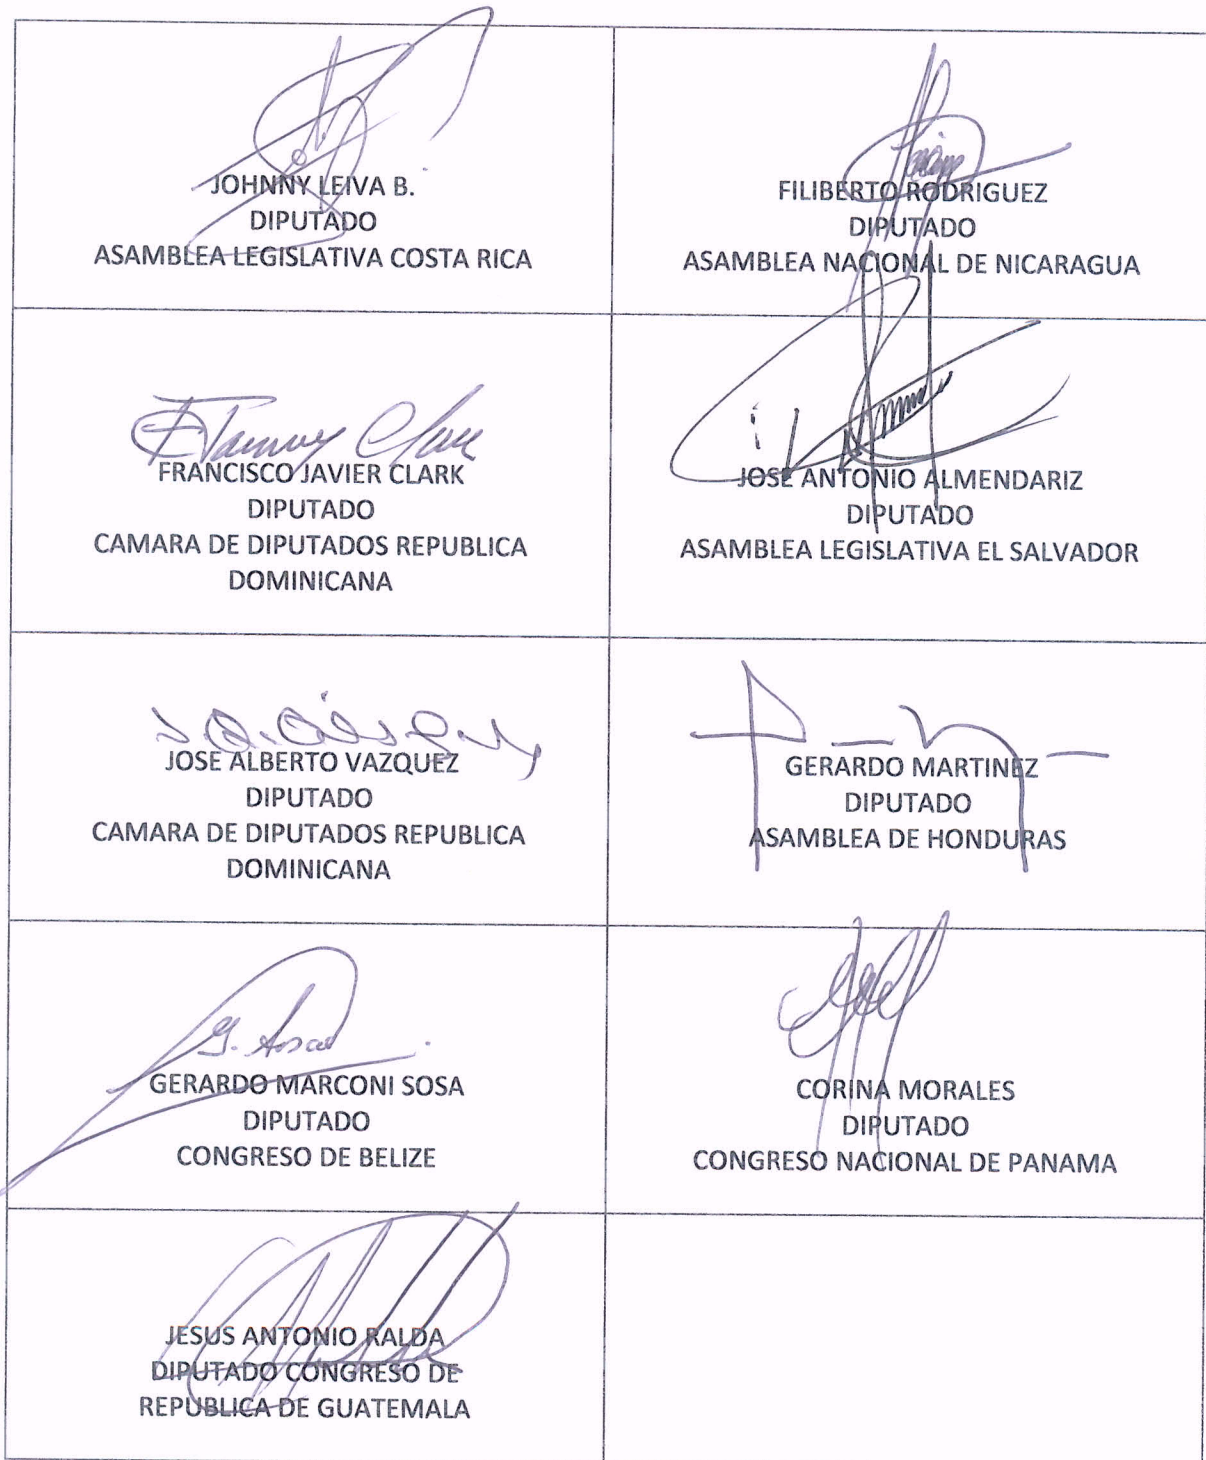 JOHNNY LEIVA B.
DIPUTADO
ASAMBLEA LEGISLATIVA COSTA RICA
FILIBERTO RODRIGUEZ
DIPUTADO
ASAMBLEA NACIONAL DE NICARAGUA
FRANCISCO JAVIER CLARK
DIPUTADO
CAMARA DE DIPUTADOS REPUBLICA
DOMINICANA
JOSE ANTONIO ALMENDARIZ
DIPUTADO
ASAMBLEA LEGISLATIVA EL SALVADOR
JOSE ALBERTO VAZQUEZ
DIPUTADO
CAMARA DE DIPUTADOS REPUBLICA
DOMINICANA
GERARDO MARTINEZ
DIPUTADO
ASAMBLEA DE HONDURAS
GERARDO MARCONI SOSA
DIPUTADO
CONGRESO DE BELIZE
CORINA MORALES
DIPUTADO
CONGRESO NACIONAL DE PANAMA
JESUS ANTONIO RALDA
DIPUTADO CONGRESO DE
REPUBLICA DE GUATEMALA